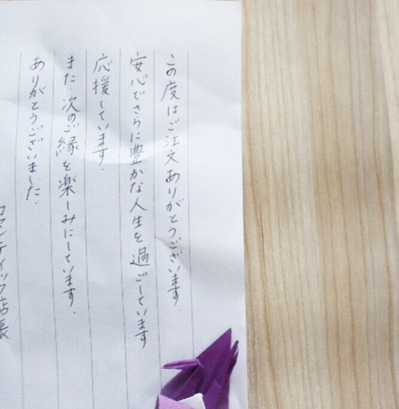 この度はご注文ありがとうございます.
安心でさらに豊かな人生を過ごしています
応援しています.
また次のご縁を楽しみにしています.
ありがとうございました.
ロマンティック店長